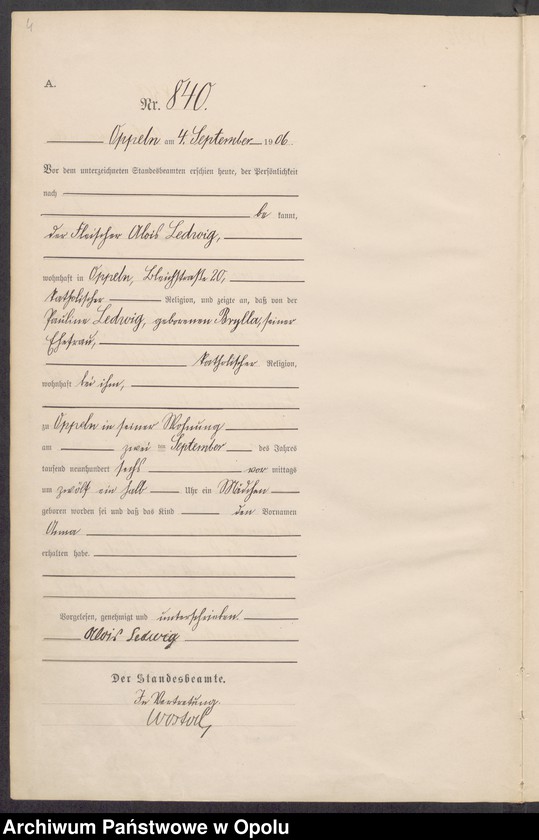 4
A.
Nr. 840.
Oppeln am 4. September 1906
Vor dem unterzeichneten Standesbeamten erschien heute, der Persönlichkeit
nach
be kannt,
der Fleischer Alois Ledwig,
wohnhaft in Oppeln, Bleichstraße 20,
katholischer Religion, und zeigte an, daß von der
Pauline Ledwig, geborenen Brylla, seiner
Ehefrau,
katholischer Religion,
wohnhaft bei ihm,
zu Oppeln in seiner Wohnung
am zwei ten September des Jahres
tausend neunhundert sechs vor mittags
um zwölf ein halb Uhr ein Mädchen
geboren worden sei und daß das Kind den Vornamen
Anna
erhalten habe.
Vorgelesen, genehmigt und unterschrieben.
Alois Ledwig
Der Standesbeamte.
In Vertretung.
Archiwum Państwowe w Opolu